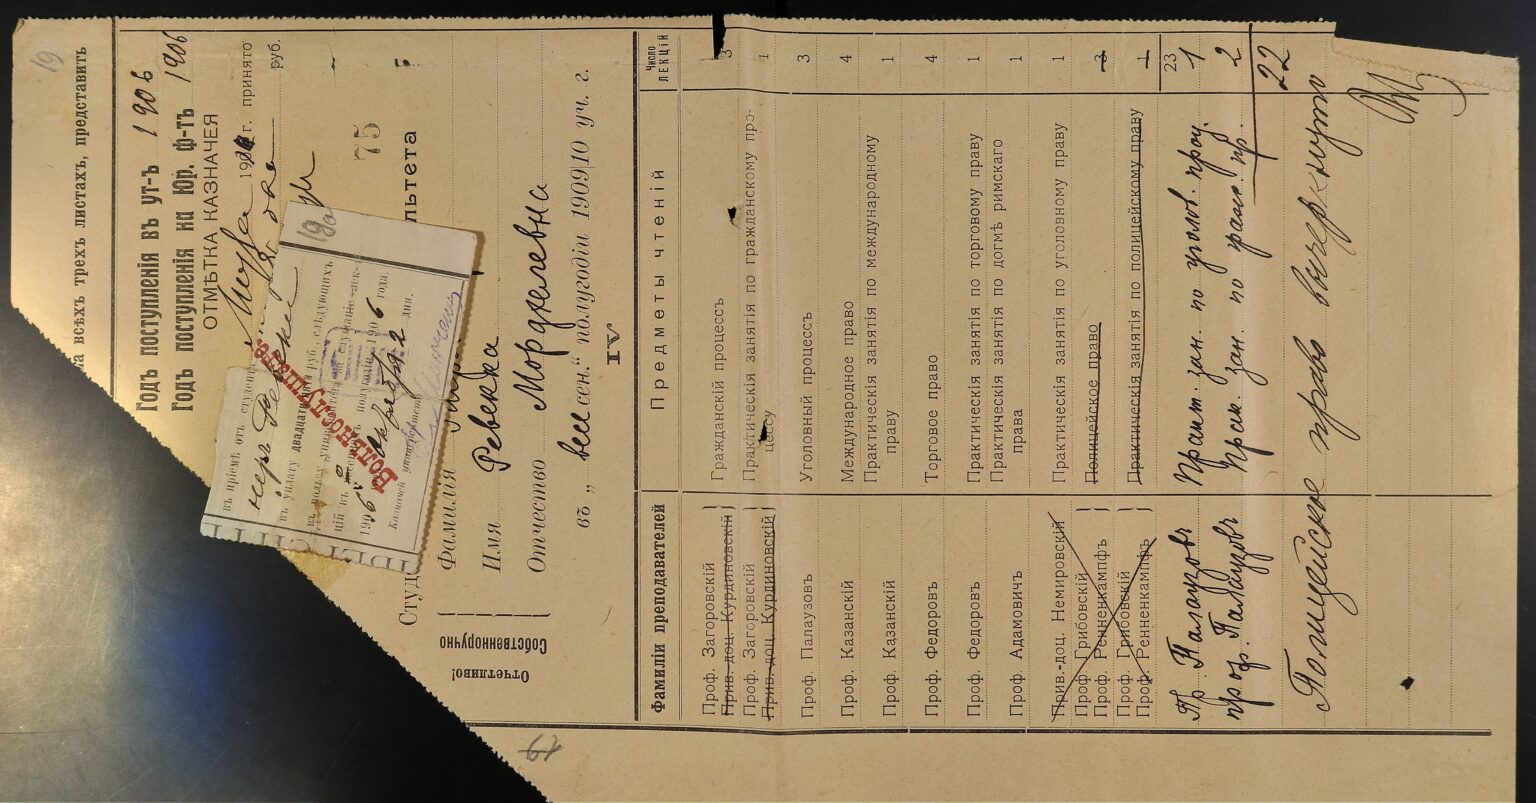 на всѣхъ трехъ листахъ, представить
19
Годъ поступленія въ ут-ъ 1906
Годъ поступленія на Юр. ф-тъ 1906
ОТМѢТКА КАЗНАЧЕЯ
г. принято
руб.
75
льтета
19
въ пріемѣ отъ студен
Ревекки
въ уплату двадцати руб., слѣдующихъ
въ пользу университета за слушаніе лек-
цій въ полугодіи 1906 года.
1906 Октября 2 дня.
Казначей университета
Вольнослушат.
Студе
Отчетливо!
Собственноручно
Фамилія
Имя Ревекка
Отчество Мордхелевна
въ „весен." полугодіи 1909|10 уч. г.
IV
Фамиліи преподавателей Предметы чтеній Число лекцій
Проф. Загоровскій Гражданскій процессъ 3
Прив.-доц. Курдиновскій
Проф. Загоровскій Практическія занятія по гражданскому про- 1
Прив.-доц. Курдиновскій цессу
Проф. Палаузовъ Уголовный процессъ 3
Проф. Казанскій Международное право 4
Проф. Казанскій Практическія занятія по международному 1
праву
Проф. Федоровъ Торговое право 4
Проф. Федоровъ Практическія занятія по торговому праву 1
Проф. Адамовичъ Практическія занятія по догмѣ римскаго 1
права
Прив.-доц. Немировскій Практическія занятія по уголовному праву 1
Проф. Грибовскій Полицейское право 3
Проф. Ренненкампфъ
Проф. Грибовскій Практическія занятія по полицейскому праву 1
Проф. Ренненкампфъ
23
Пр. Палаузовъ Практ. зан. по уголов. проц. 1
проф. Палаузовъ Прак. зан. по 2
22
Полицейское право вычеркнуто
19